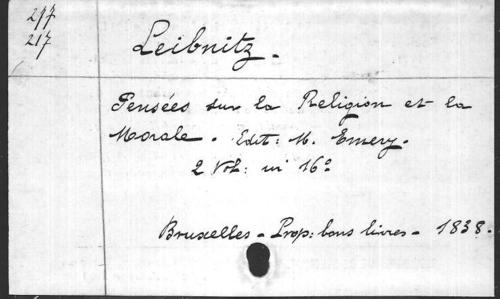 297
217
Leibnitz.
Pensées sur la Religion et la
Morale. Edit: M. Emery.
2 Vol: in 16°
Bruxelles - Prop: bons livres - 1838.